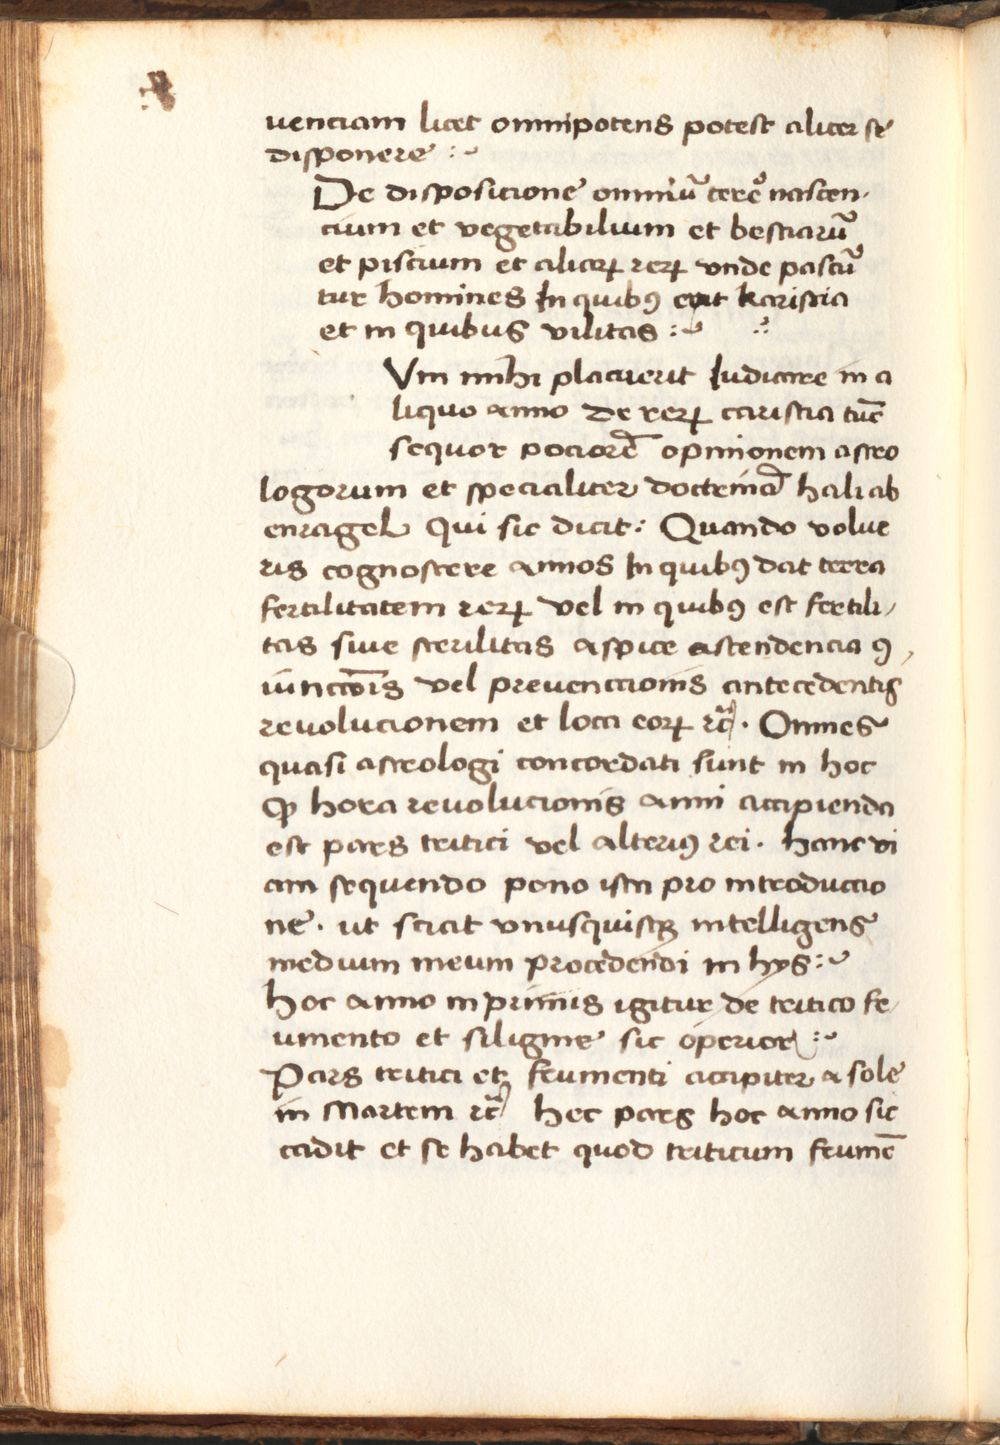 uenciam licet omnipotens potest aliter se
disponere :~
De disposicione omniū terre nascen-
cium et vegetabilium et bestiarū
et piscium et aliarꝝ rerꝝ vnde pascū
tur homines In quibꝰ erit karistia
et in quibus vilitas :~ :·
Vm mihi placuerit Iudicare in a
liquo anno de rerꝝ caristia tūc
sequor pociorē opinionem astro
logorum et specialiter doctrinā haliab
enragel Qui sic dicit : Quando volue
ris cognoscere annos In quibꝰ dat terra
fertilitatem rerꝝ vel in quibꝰ est fertili,
tas siue sterilitas aspice ascendencia ꝯ,
iūnccōis vel preuencionis antecedentis
reuolucionem et loca eorꝝ rc̄. Omnes
quasi astrologi concordati sunt in hoc
ꝙ hora reuolucionis anni accipienda
est pars tritici vel alteriꝰ rei. hanc vi
am sequendo pono ista pro introductio
ne. ut sciat vnusquisqꝫ intelligens
medium meum procedendi in hys :~
hoc anno inprimis igitur de tritico fr
umento et siligine sic operior :~
Pars tritici et frumenti accipitur a sole
in Martem rc̄ hec pars hoc anno sic
cadit et se habet quod triticum frumē